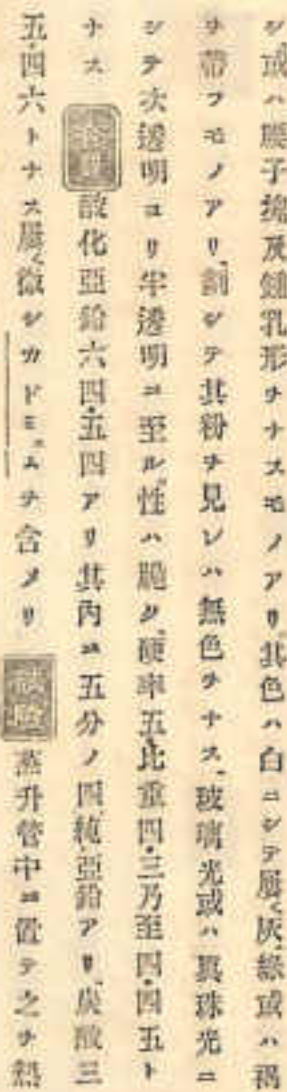 シ或ハ腰子塊及鍾乳形ヲナスモノアリ其色ハ白ニシテ屢〻灰綠或ハ褐
ヲ帶フモノアリ劃シテ其粉ヲ見レハ無色ヲナス、玻璃光或ハ眞珠光ニ
シテ次透明ヨリ半透明ニ至ル性ハ脆シ硬率五比重四・三乃至四・四五ト
ナス 酸化亞鉛六四・五四アリ其内ニ五分ノ四純亞鉛アリ、炭酸三
五・四六トナス屢〻微シカドミュムヲ含メリ 蒸升管中ニ置テ之ヲ熱